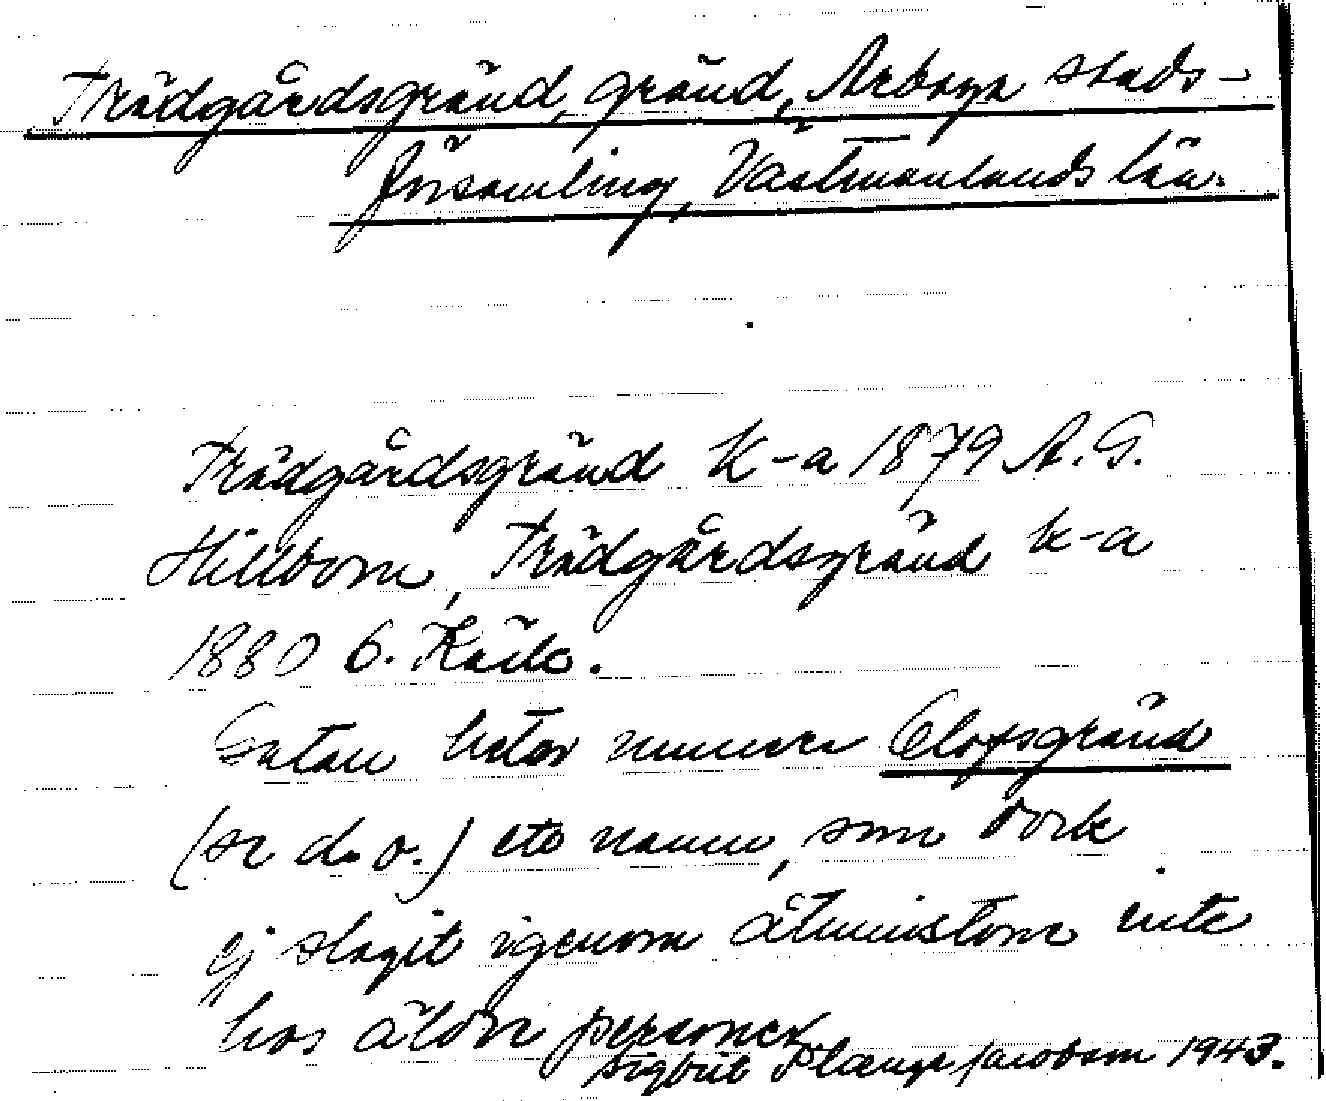 Trädgårdsgränd, gränd, Arboga stads-
församling, Västmanlands län.
Trädgårdsgränd k-a 1879 A. G.
Hillbom, Trädgårdsgränd k-a
1880 G. Käck.
Gatan heter numera Olofsgränd
(se d. o.) ett namn, som dock
ej slagit igenom åtminstone inte
hos äldre personer
Sigbrit Plænge Jacobson 1943.